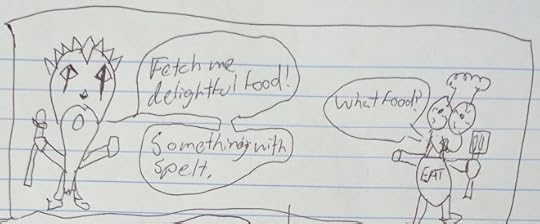 Fetch me
delightful food!
Something with
spelt.
What food?
EAT